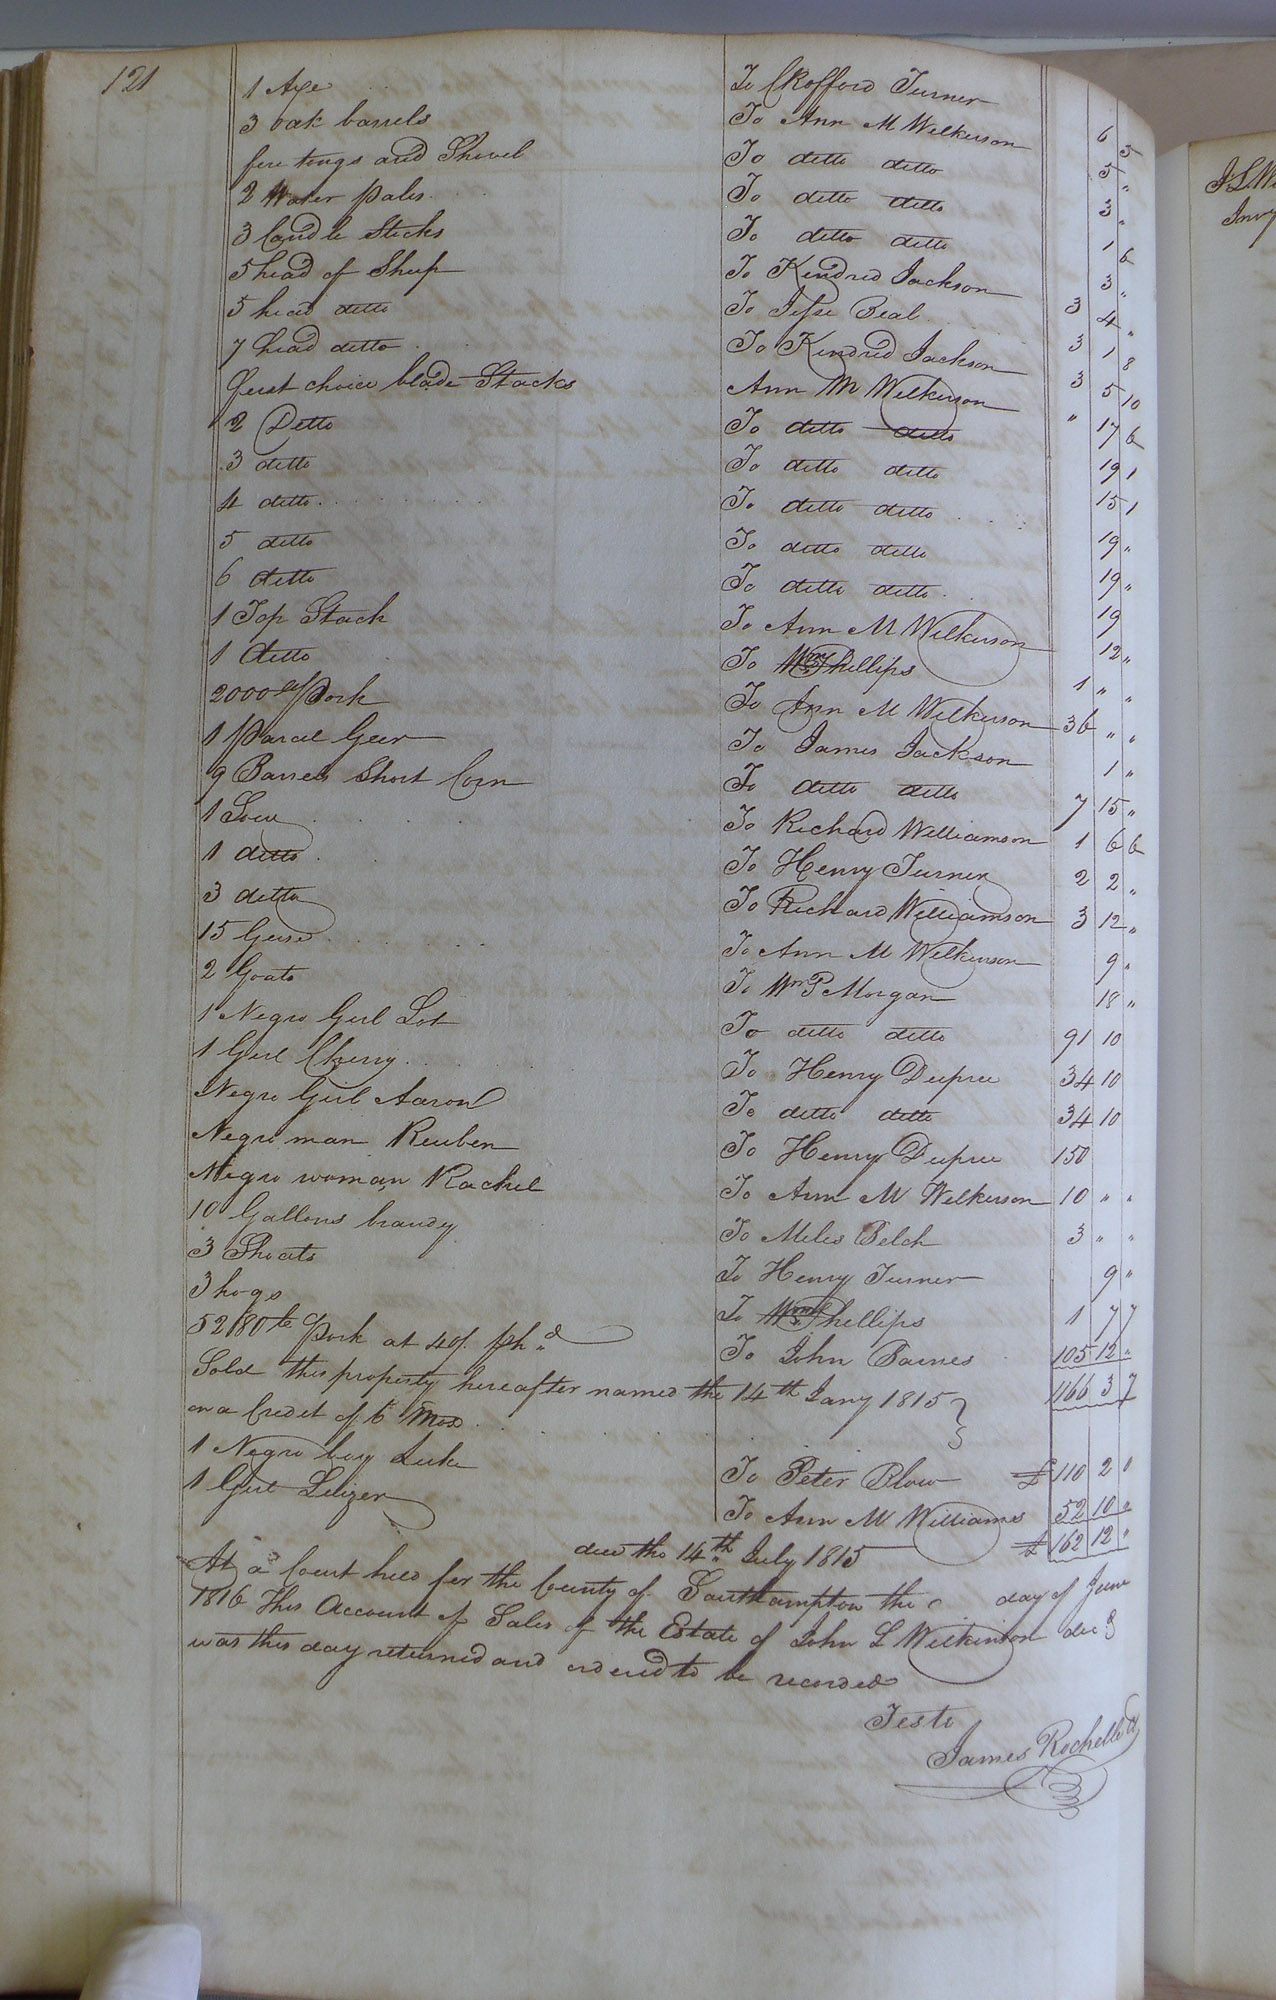 121
1 Axe To Ckofford Turner 6 5
3 oak barrels To Ann M Wilkerson 5 "
fire tongs and Shovel To ditto ditto 3 "
2 Water pales To ditto ditto 1 6
3 Candle Sticks To ditto ditto 3 "
5 head of Sheep To Kindred Jackson 3 4 "
5 head ditto To Jesse Beal 3 1 8
7 head ditto To Kindred Jackson 3 5 10
first choice blade Stacks Ann M Wilkerson " 17 6
2 Ditto To ditto ditto 19 1
3 ditto To ditto ditto 15 1
4 ditto To ditto ditto 19 "
5 ditto To ditto ditto 19 "
6 ditto To ditto ditto 19
1 Top Stack To Ann M Wilkerson 12 "
1 ditto To Wm Phillips 1 " "
2000 lb Pork To Ann M Wilkerson 36 " "
1 Parcel Geer To James Jackson 1 "
9 Barrels Short Corn To ditto ditto 7 15 "
1 Sow To Richard Williamson 1 6 6
1 ditto To Henry Turner 2 2 "
3 ditto To Richard Williamson 3 12 "
15 Geese To Ann M Wilkerson 9 "
2 Goats To Wm P Morgan 18 "
1 Negro Girl Lot To ditto ditto 91 10
1 Girl Cherry To Henry Dupree 34 10
Negro Girl Aaron To ditto ditto 34 10
Negro man Reuben To Henry Dupree 150
Negro woman Rachel To Ann M Wilkerson 10 " "
10 Gallons brandy To Miles Belch 3 " "
3 Shoats To Henry Turner 9 "
3 hogs To Wm Phillips 1 7 7
5280 lb Pork at 40/. ph.d To John Barnes 105 12 "
1166 3 7
Sold this property hereafter named the 14th Jany 1815
on a Credit of 6 Mos
1 Negro boy Luke To Peter Blow £ 110 2 0
1 Girl Lilizer To Ann M Williams 52 10 "
due the 14th July 1815 £ 162 12 "
At a Court held for the County of Southampton the day of June
1816 This Account of Sales of the Estate of John L Wilkinson decd
was this day returned and ordered to be recorded
Teste
James Rochelle Cl
J L W
Inv